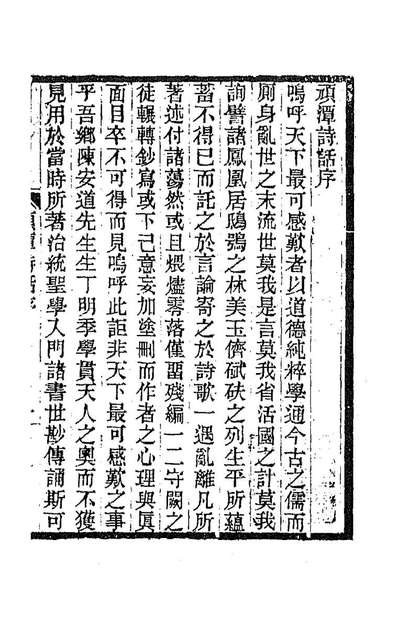 頑潭詩話序
嗚呼天下最可感歎者以道德純粹學通今古之儒而
廁身亂世之末流世莫我是言莫我省活國之計莫我
詢譬諸鳳凰居鴟鴞之林美玉儕碔砆之列生平所蘊
蓄不得已而託之於言論寄之於詩歌一遇亂離凡所
著述付諸蕩然或且煨燼零落僅留殘編一二守闕之
徒輾轉鈔寫或下己意妄加塗刪而作者之心理與眞
面目卒不可得而見嗚呼此詎非天下最可感歎之事
乎吾鄉陳安道先生生丁明季學貫天人之奧而不獲
見用於當時所著治統聖學入門諸書世尠傳誦斯可